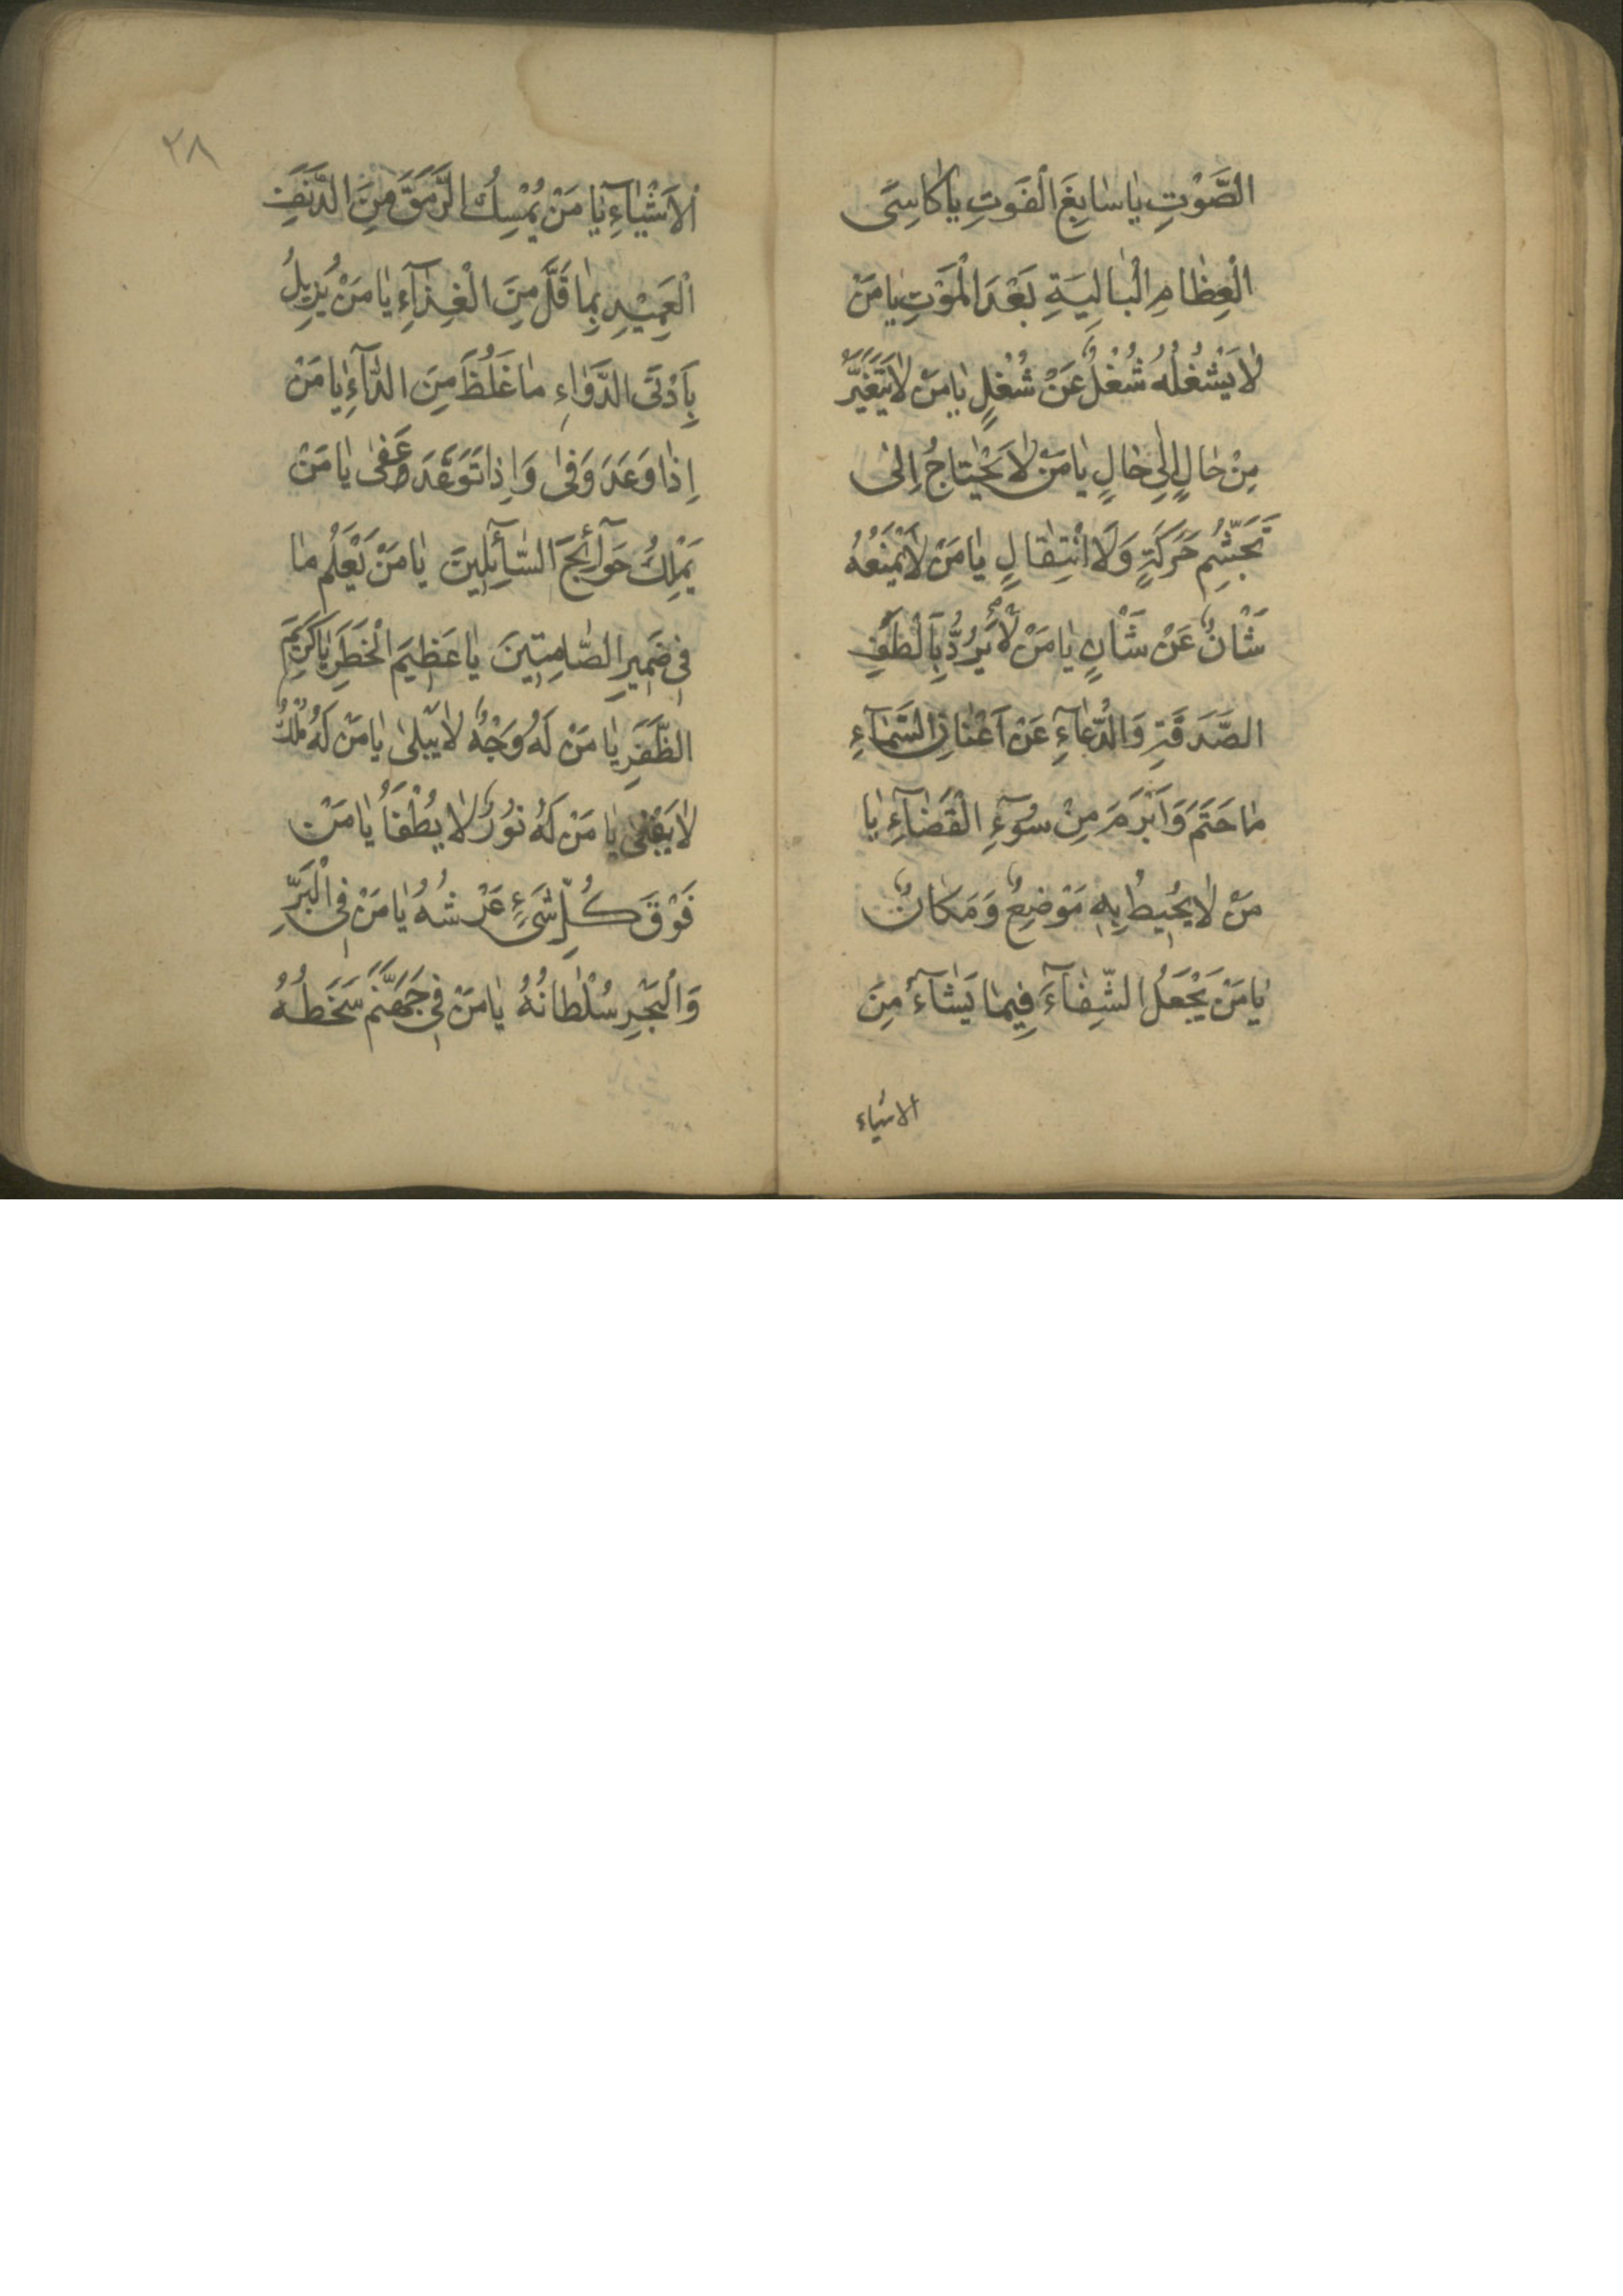 الصَّوْتِ يا سابِغَ الْفَوْتِ يا كاسِىَ
الْعِظامِ الْبالِيَةِ بَعْدَ الْمَوْتِ يا مَنْ
لا يَشْغُلُهُ شُغْلٌ عَنْ شُغْلٍ يا مَنْ لا يَتَغَيَّرُ
مِنْ حالٍ اِلى حالٍ يا مَنْ لا يَحْتاجُ اِلى
تَجَشُّمِ حَرَكَةٍ وَلَا انْتِقالٍ يا مَنْ لا يَمْنَعُهُ
شَأْنٌ عَنْ شَأْنٍ يا مَنْ لا يَرُدُّ بِاَلْطَفِ
الصَّدَقَةِ وَالدُّعآءِ عَنْ اَعْنانِ السَّمآءِ
ما حَتَمَ وَاَبْرَمَ مِنْ سُوۤءِ الْقَضآءِ يا
مَنْ لا يُحِيطُ بِهِ مَوْضِعٌ وَمَكانٌ
يا مَنْ يَجْعَلُ الشِّفآءَ فِيما يَشآءُ مِنَ
الاشياء
٢٨
الْاَشْيآءِ يا مَنْ يُمْسِكُ الرَّمَقَ مِنَ الدَّنِفِ
الْعَمِيْدِ بِما قَلَّ مِنَ الْغِذآءِ يا مَنْ يُزِيلُ
بِاَدْنَى الدَّواءِ ما غَلُظَ مِنَ الدّآءِ يا مَنْ
اِذا وَعَدَ وَفى وَاِذا تَوَعَّدَ عَفى يا مَنْ
يَمْلِكُ حَوآئِجَ السّآئِلِينَ يا مَنْ يَعْلَمُ ما
فِى ضَمِيرِ الصّامِتِينَ يا عَظِيمَ الْخَطَرِ يا كَرِيمَ
الظَّفَرِ يا مَنْ لَهُ وَجْهٌ لا يَبْلى يا مَنْ لَهُ مُلْكٌ
لا يَفْنى يا مَنْ لَهُ نُورٌ لا يُطْفَأُ يا مَنْ
فَوْقَ كُلِّ شَىْءٍ عَرْشُهُ يا مَنْ فِى الْبَرِّ
وَالْبَحْرِ سُلْطانُهُ يا مَنْ فِى جَهَنَّمَ سَخَطُهُ